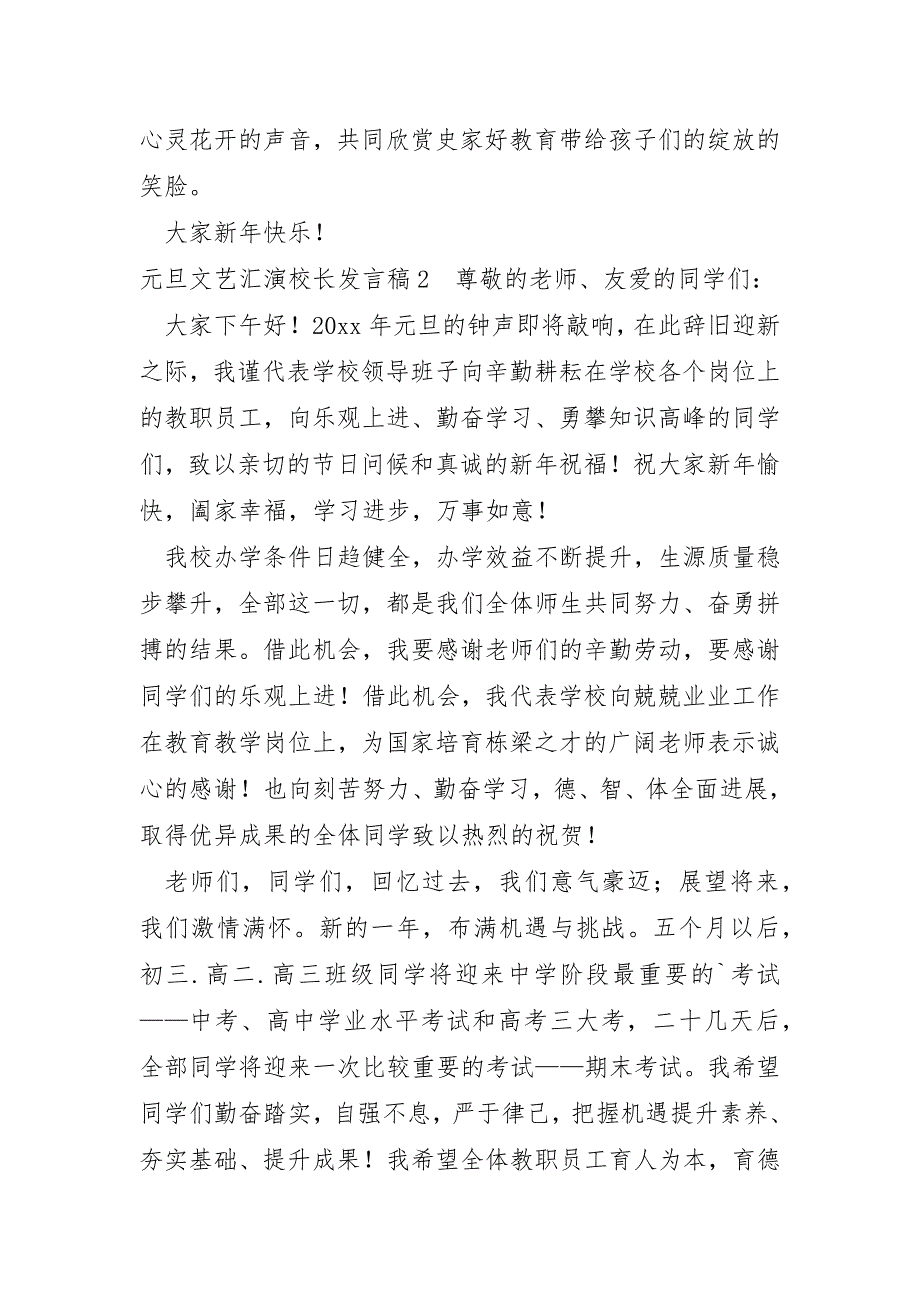 心灵花开的声音，共同欣赏史家好教育带给孩子们的绽放的
笑脸。
大家新年快乐！
元旦文艺汇演校长发言稿2　尊敬的老师、友爱的同学们：
大家下午好！20xx年元旦的钟声即将敲响，在此辞旧迎新
之际，我谨代表学校领导班子向辛勤耕耘在学校各个岗位上
的教职员工，向乐观上进、勤奋学习、勇攀知识高峰的同学
们，致以亲切的节日问候和真诚的新年祝福！祝大家新年愉
快，阖家幸福，学习进步，万事如意！
我校办学条件日趋健全，办学效益不断提升，生源质量稳
步攀升，全部这一切，都是我们全体师生共同努力、奋勇拼
搏的结果。借此机会，我要感谢老师们的辛勤劳动，要感谢
同学们的乐观上进！借此机会，我代表学校向兢兢业业工作
在教育教学岗位上，为国家培育栋梁之才的广阔老师表示诚
心的感谢！也向刻苦努力、勤奋学习，德、智、体全面进展，
取得优异成果的全体同学致以热烈的祝贺！
老师们，同学们，回忆过去，我们意气豪迈；展望将来，
我们激情满怀。新的一年，布满机遇与挑战。五个月以后，
初三.高二.高三班级同学将迎来中学阶段最重要的`考试
——中考、高中学业水平考试和高考三大考，二十几天后，
全部同学将迎来一次比较重要的考试——期末考试。我希望
同学们勤奋踏实，自强不息，严于律己，把握机遇提升素养、
夯实基础、提升成果！我希望全体教职员工育人为本，育德